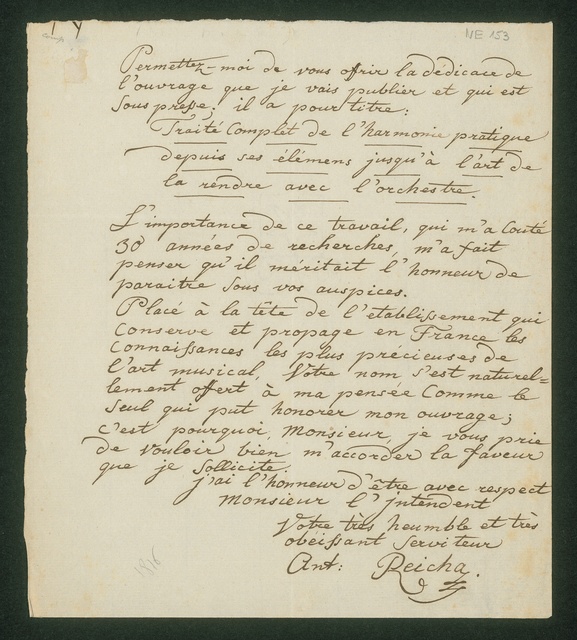 NE 153
Permettez-moi de vous offrir la dédicace de
l'ouvrage que je vais publier et qui est
sous presse; il a pour titre:
Traité Complet de l'harmonie pratique
depuis ses élémens jusqu'à l'art de
la rendre avec l'orchestre.
L'importance de ce travail, qui m'a Couté
30 années de recherches, m'a fait
penser qu'il méritait l'honneur de
paraitre sous vos auspices.
Placé à la tête de l'établissement qui
Conserve et propage en France les
Connaissances les plus précieuses de
l'art musical, Votre nom s'est naturel=
lement offert à ma pensée Comme le
seul qui put honorer mon ouvrage;
c'est pourquoi, Monsieur, je vous prie
de vouloir bien m'accorder la faveur
que je sollicite.
j'ai l'honneur d'être avec respect
Monsieur l'jntendent
Votre très heumble et très
obeissant Serviteur
Ant: Reicha.